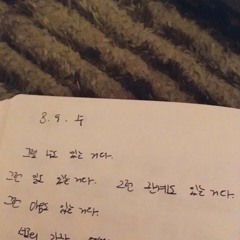 3. 9. 수
그럴 날도 있는 거다.
그런 일도 있는 거다. 그런 관계도 있는 거다.
그런 마음도 있는 거다.